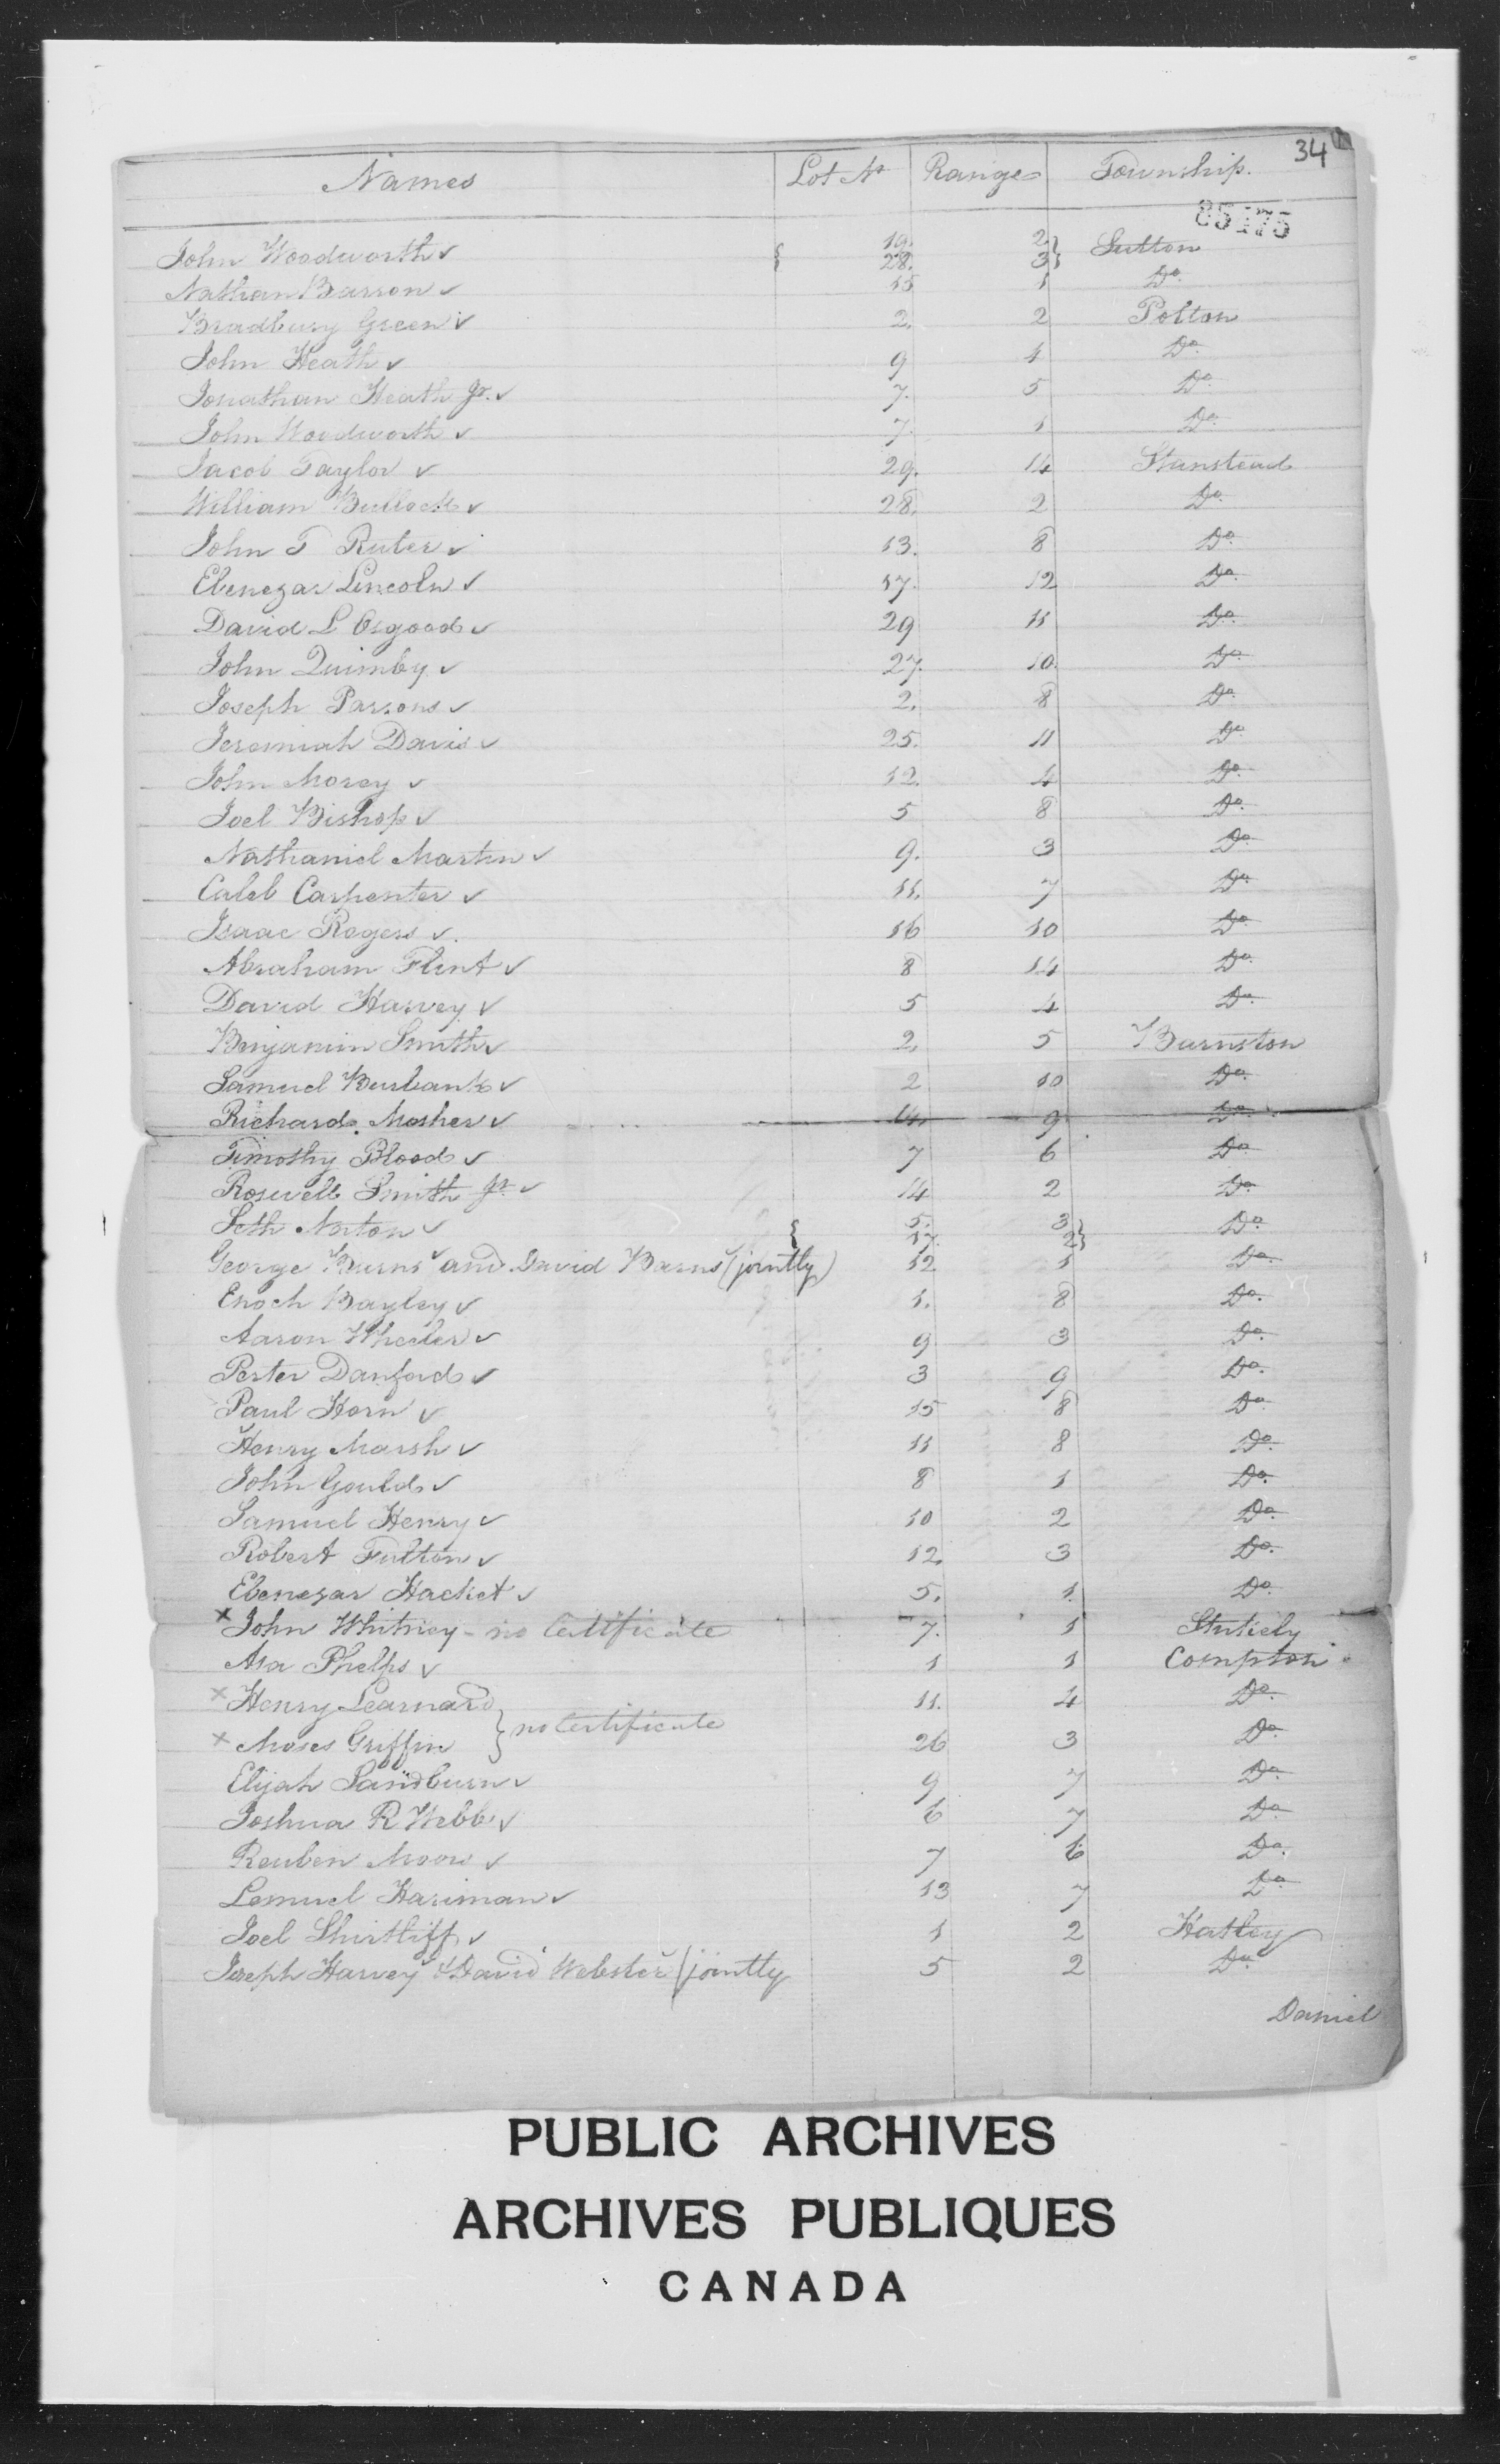 34
Names Lot No Range Township.
85175
John Woodworth ✓ { 19. 2 } Sutton
28. 3
Nathan Barron ✓ 15 1 Do.
Bradbury Green ✓ 2. 2 Potton
John Heath ✓ 9 1 Do.
Jonathan Heath Jr. ✓ 7. 5 Do.
John Woodworth ✓ 7. 1 Do.
Jacob Taylor ✓ 29. 14 Stanstead
William Bullock ✓ 28. 2 Do.
John T Ruter ✓ 13. 8 Do.
Ebenezar Lincoln ✓ 17. 12 Do.
David L Osgood ✓ 29 11 Do.
John Quimby ✓ 27. 10. Do.
Joseph Parsons ✓ 2. 8 Do.
Jeremiah Davis ✓ 25. 11 Do.
John Morey ✓ 12. 4 Do.
Joel Bishop ✓ 5 8 Do.
Nathaniel Martin ✓ 9. 3 Do.
Caleb Carpenter ✓ 11. 7 Do.
Isaac Rogers ✓ 16 10 Do.
Abraham Flint ✓ 8 14 Do.
David Harvey ✓ 5 4 Do.
Benjamin Smith ✓ 2. 5 Barnston
Samuel Burbank ✓ 2 10 Do.
Richard Mosher ✓ 14. 9 Do.
Timothy Blood ✓ 7 6 Do
Roswell Smith Jr. ✓ 14 2 Do.
Seth Norton ✓ { 5. 3 } Do.
17. 2
George Burns ✓ and David Barns ✓ (jointly) 12 1 Do.
Enoch Bayley ✓ 1. 8 Do.
Aaron Wheeler ✓ 9 3 Do.
Perter Danford ✓ 3 9 Do.
Paul Horn ✓ 15 8 Do.
Henry Marsh ✓ 11 8 Do.
John Gould ✓ 8 1 Do.
Samuel Henry ✓ 10 2 Do.
Robert Fulton ✓ 12. 3 Do.
Ebenezar Hacket ✓ 5. 1. Do.
x John Whitney - no Certificate 7. 1 Stukely
Asa Phelps ✓ 1 1 Compton
x Henry Learnard } no Certificate 11. 4 Do.
x Moses Griffin 26 3 Do.
Elijah Sandburn ✓ 9 7 Do.
Joshua R Webb ✓ 6 7 Do.
Reuben Moors ✓ 7 6 Do.
Lemuel Hariman ✓ 13 7 Do.
Joel Shirtliff ✓ 1 2 Hatley
Joseph Harvey ✓ & David Webster ✓ (jointly 5 2 Do.
Daniel
PUBLIC ARCHIVES
ARCHIVES PUBLIQUES
CANADA